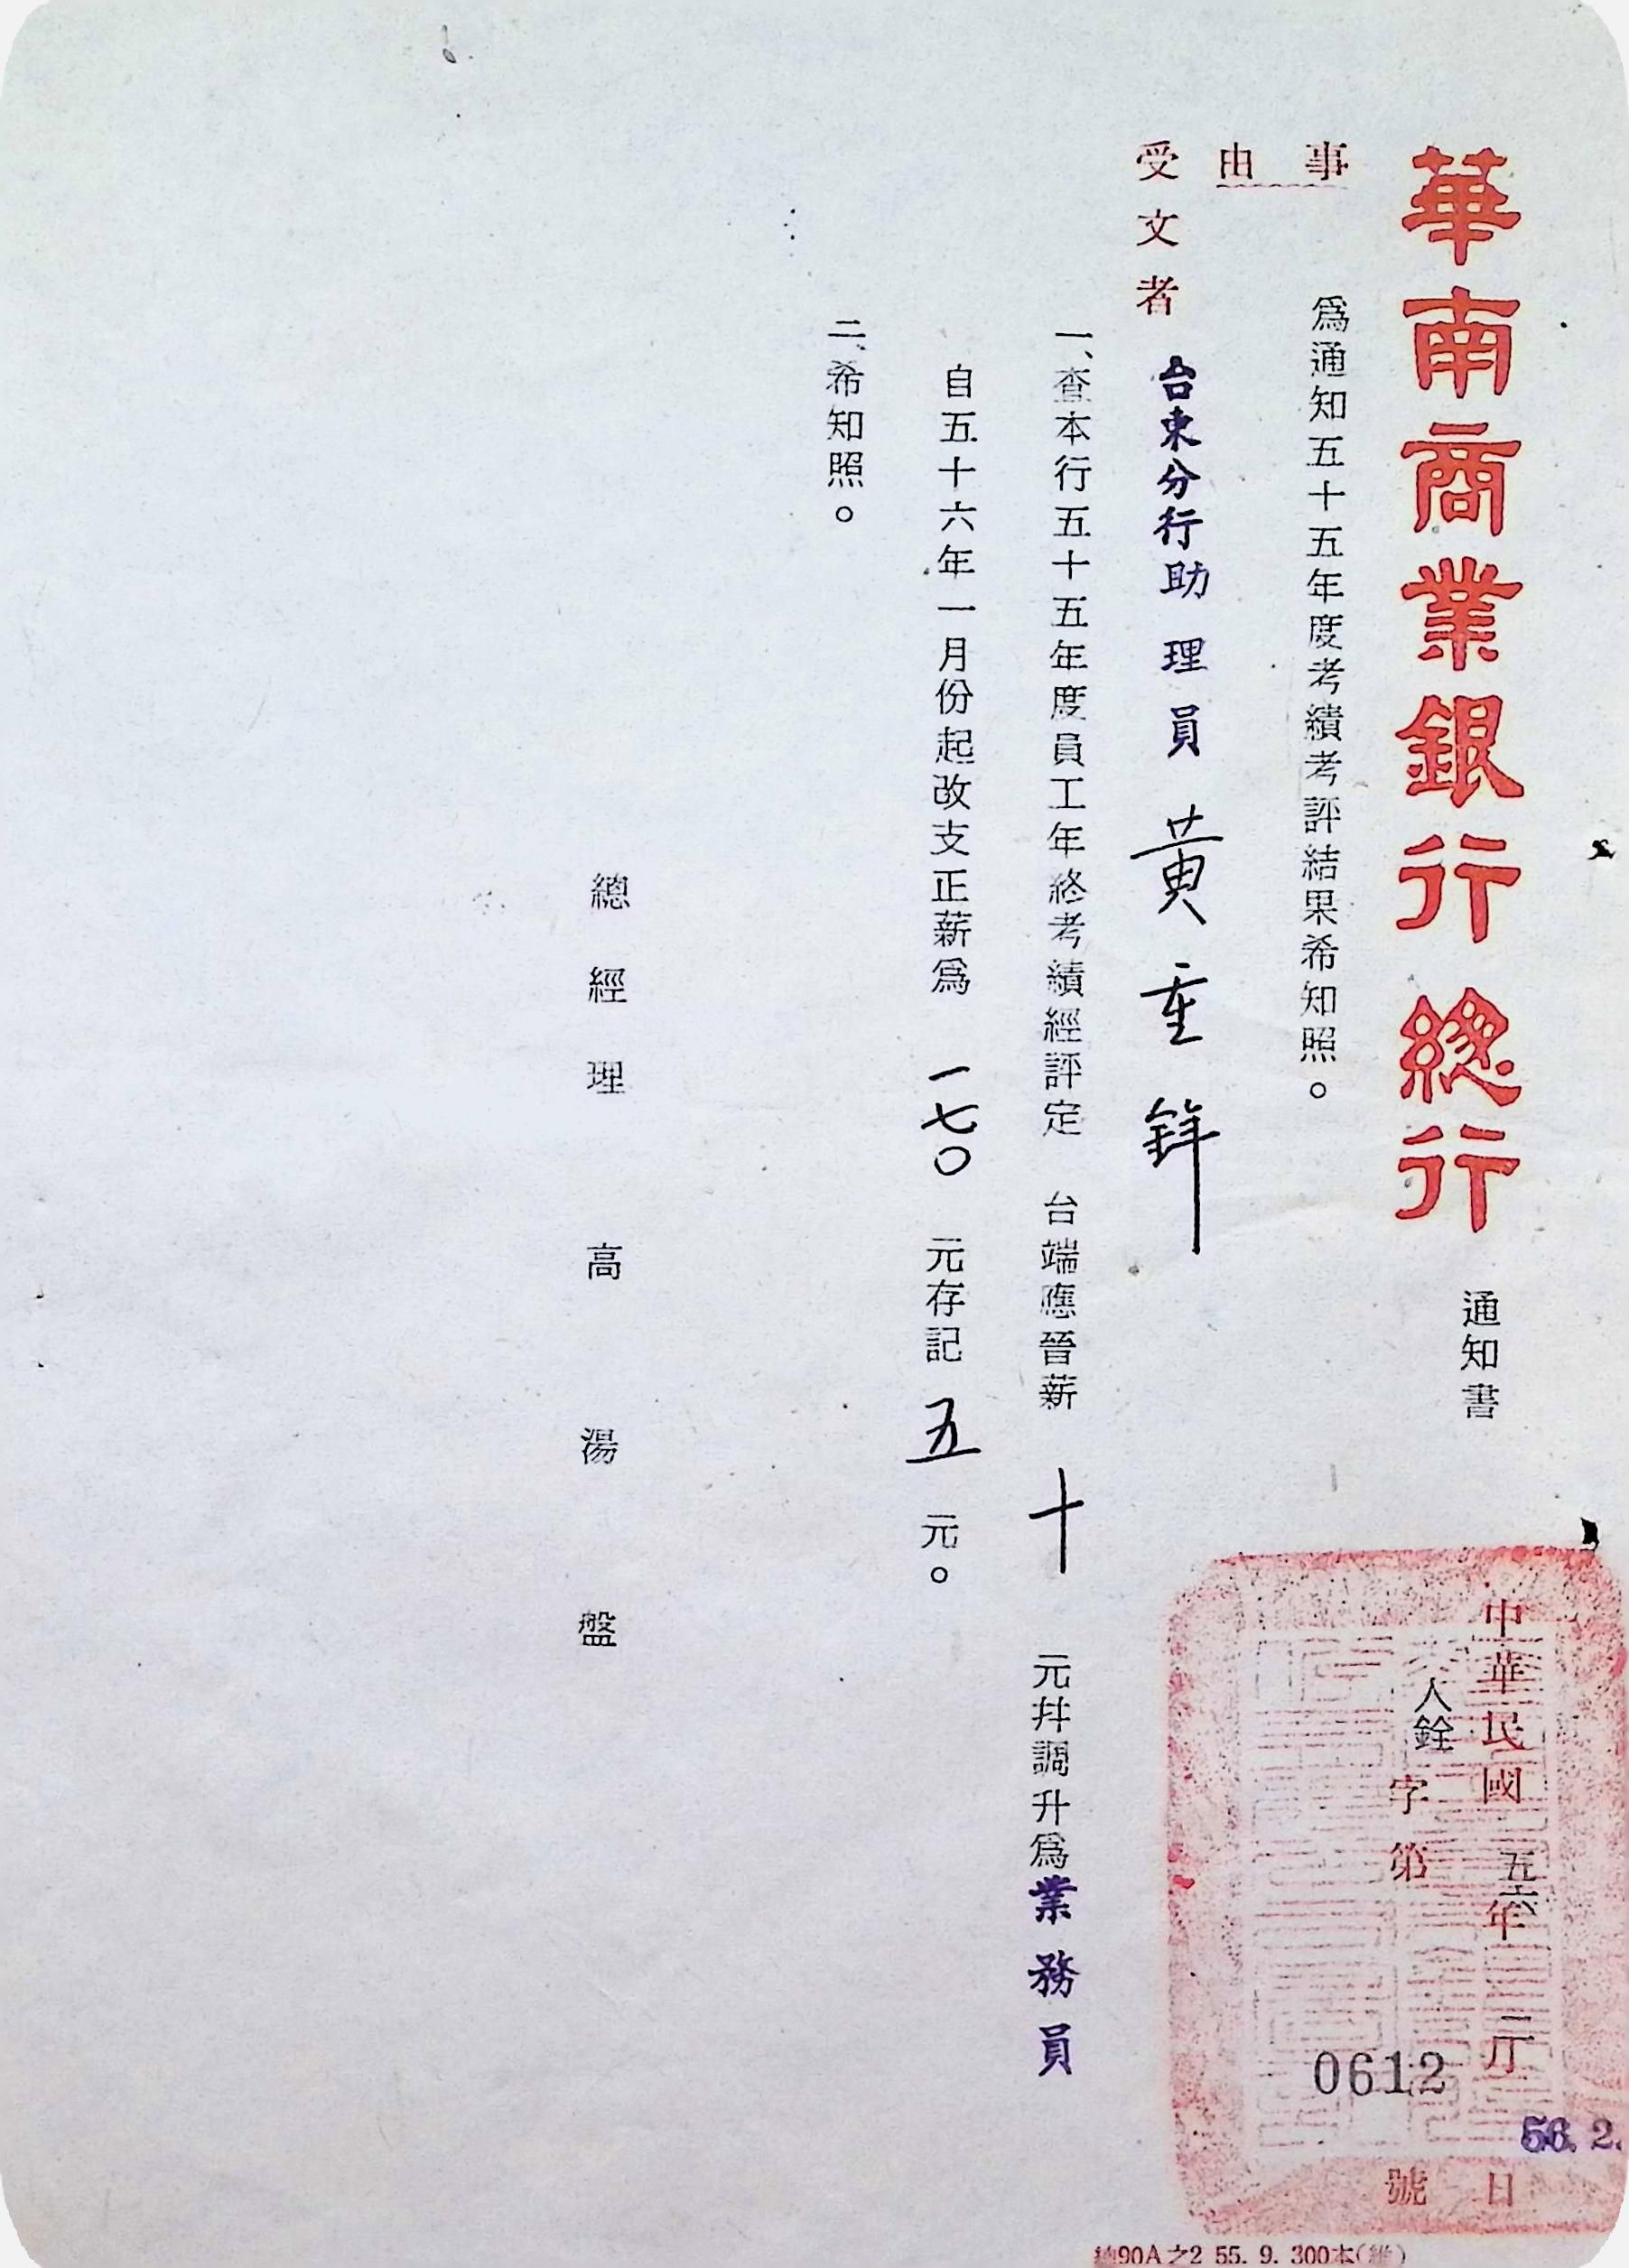 華南商業銀行總行 通知書
中華民國五六年二月 日
56. 2.
人銓字第 0612 號
事由 為通知五十五年度考績考評結果希知照。
受文者 台東分行助理員 黃重鋅
一、查本行五十五年度員工年終考績經評定 台端應晉薪 十 元幷調升為業務員
自五十六年一月份起改支正薪為 一七〇 元存記 五 元。
二、希知照。
總經理 高湯盤
90A之2 55. 9. 300本